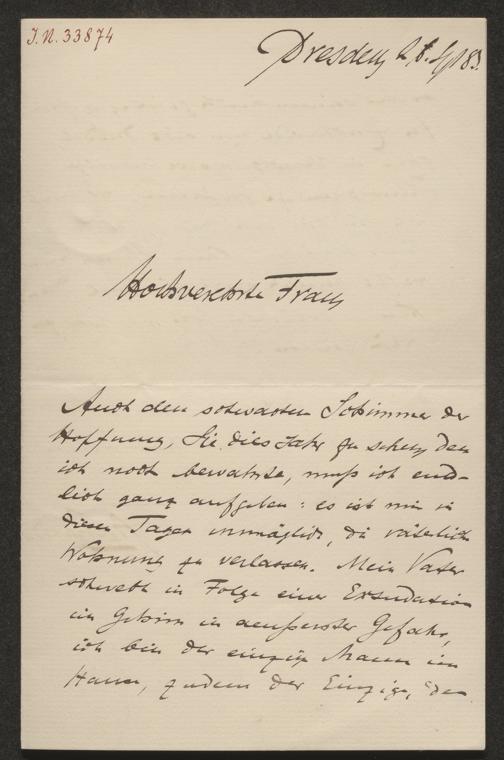 I.N. 33874
Dresden 28. 9/83.
Hochverehrte Frau,
Auch den schwachen Schimmer der
Hoffnung, Sie dies Jahr zu sehen, den
ich noch bewahrte, muß ich end-
lich ganz aufgeben: es ist mir in
diesen Tagen unmöglich, die väterliche
Wohnung zu verlassen. Mein Vater
schwebt in Folge einer Exsudation
im Gehirn in aeußerster Gefahr,
ich bin der einzige Mann im
Hause, zudem der Einzige, den